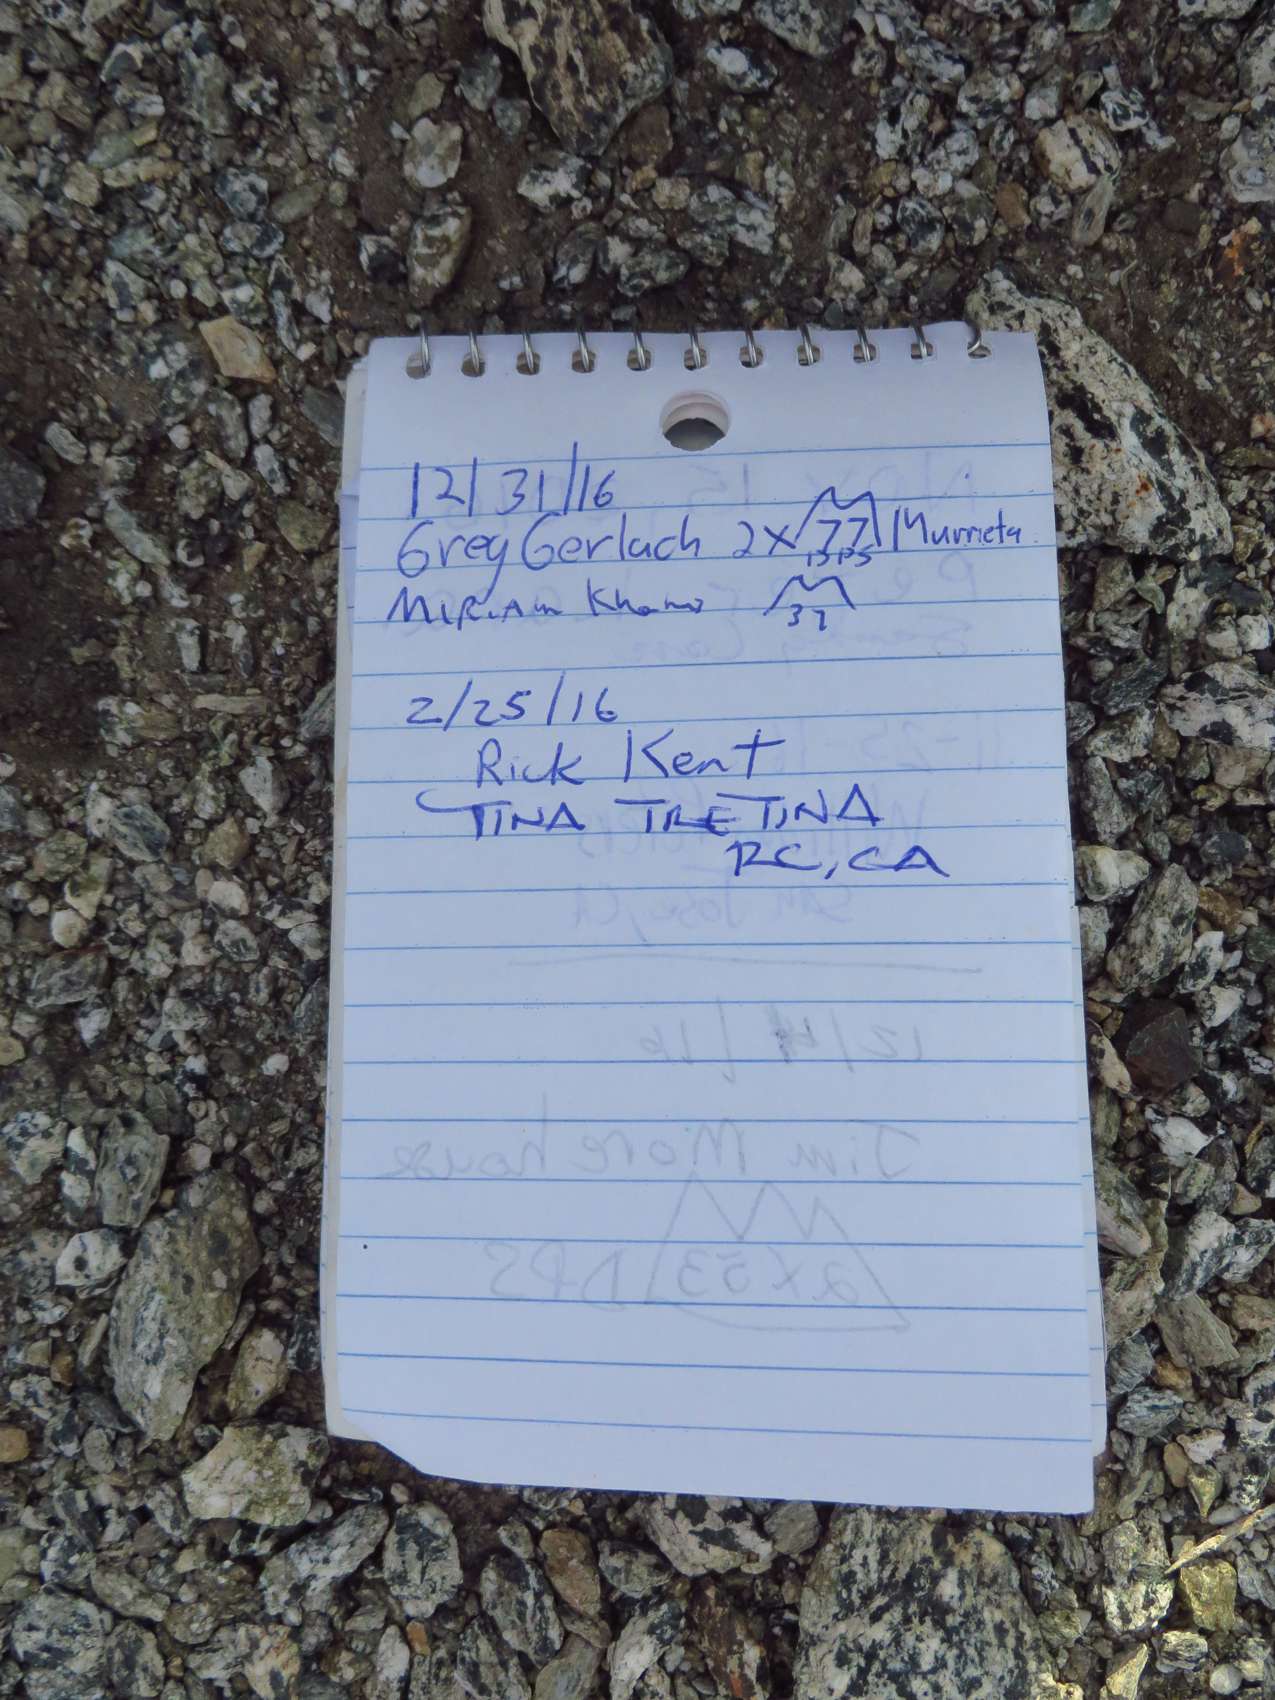 12/31/16
Greg Gerlach 2x 77 DPS Murrieta
Miriam 37
2/25/16
Rick Kent
TINA TRETINA
RC, CA